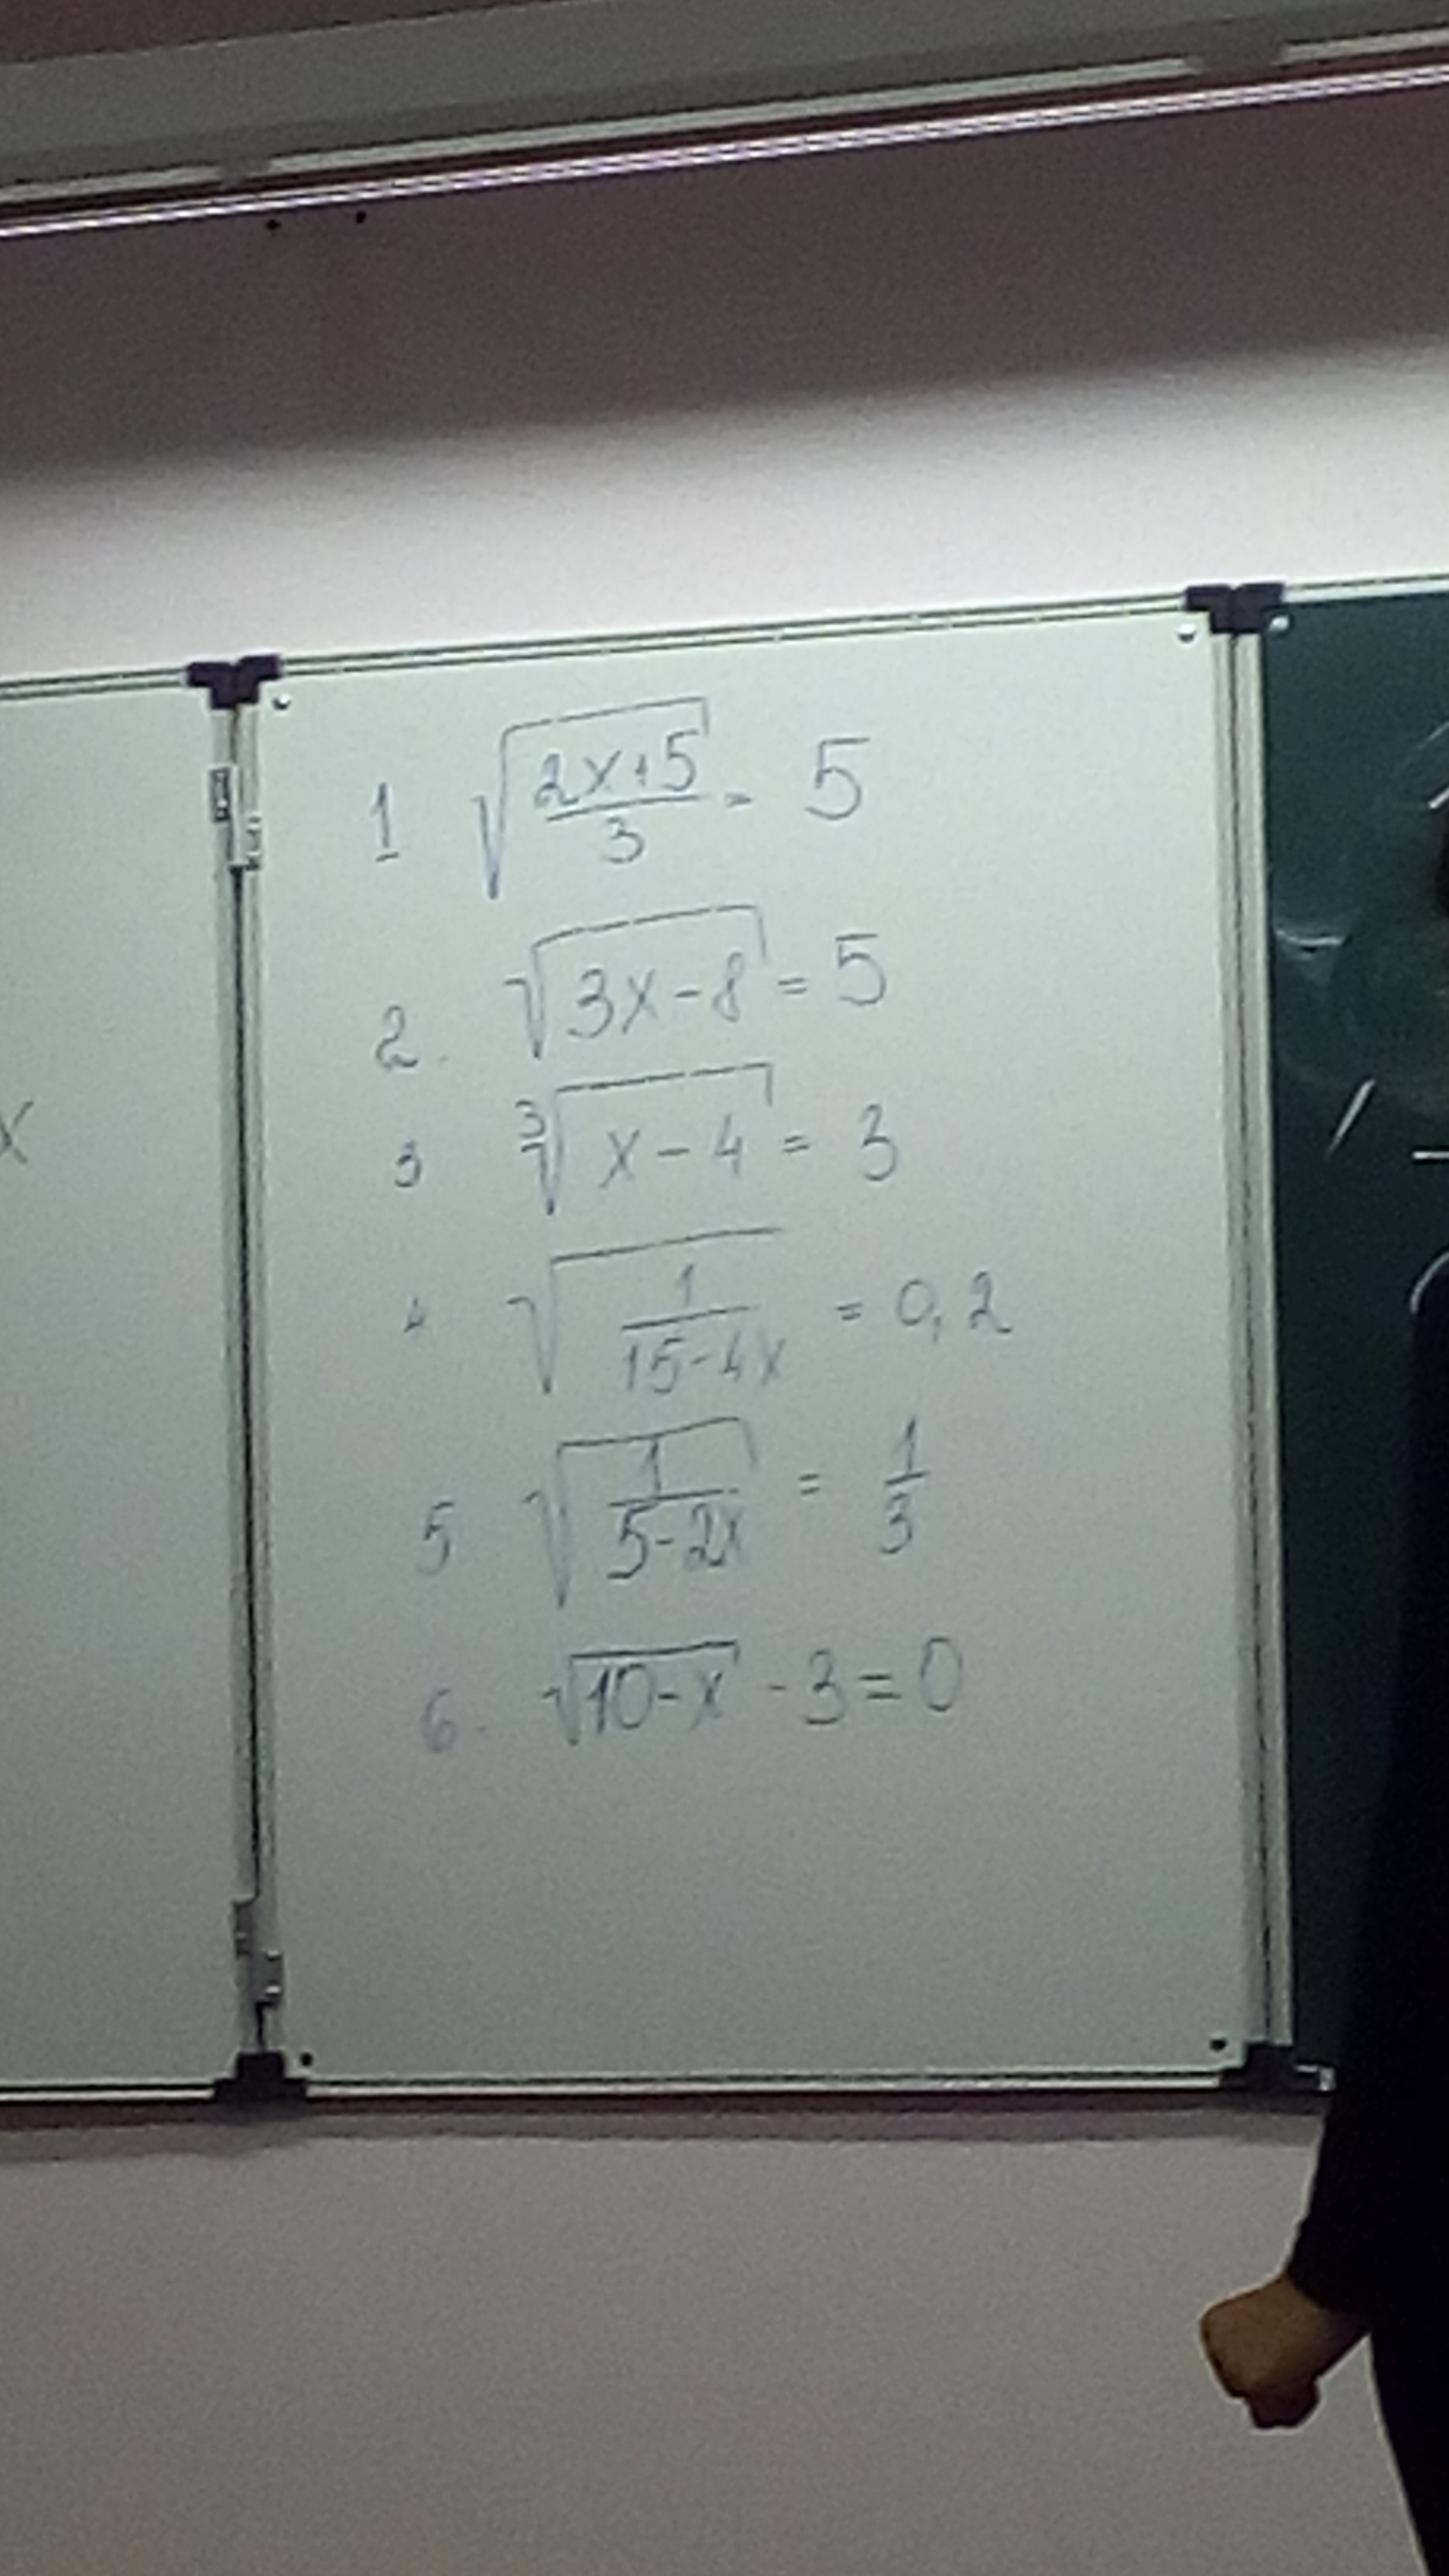 x
1 √((2x+5)/3) = 5
2. √(3x-8) = 5
3 ∛(x-4) = 3
4 √(1/(15-4x)) = 0,2
5 √(1/(5-2x)) = 1/3
6. √(10-x) - 3 = 0